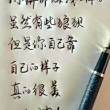 虽然有些狼狈
但是你自己靠
自己的样子
真的很美